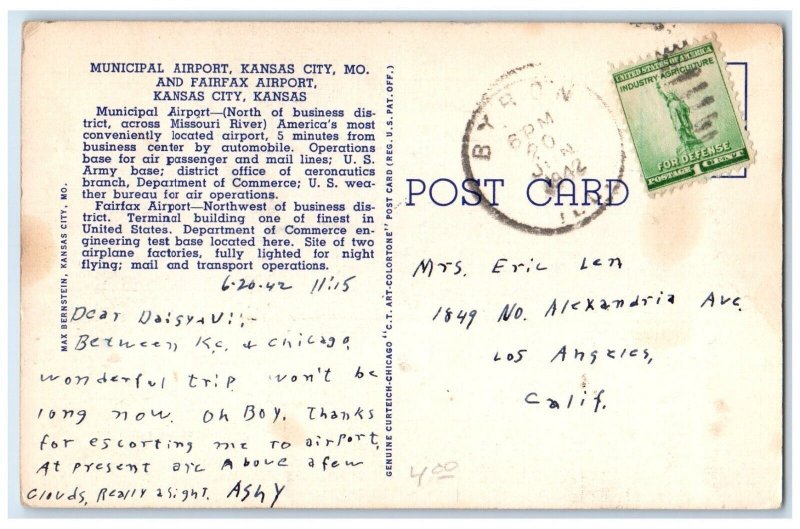 MUNICIPAL AIRPORT, KANSAS CITY, MO.
AND FAIRFAX AIRPORT,
KANSAS CITY, KANSAS
Municipal Airport—(North of business dis-
trict, across Missouri River) America's most
conveniently located airport, 5 minutes from
business center by automobile. Operations
base for air passenger and mail lines; U. S.
Army base; district office of aeronautics
branch, Department of Commerce; U. S. wea-
ther bureau for air operations.
Fairfax Airport—Northwest of business dis-
trict. Terminal building one of finest in
United States. Department of Commerce en-
gineering test base located here. Site of two
airplane factories, fully lighted for night
flying; mail and transport operations.
MAX BERNSTEIN, KANSAS CITY, MO.
6-20-42 11:15
Dear Daisy & Vi;-
Between K.C. & Chicago.
wonderful trip won't be
long now. Oh Boy. Thanks
for escorting me to airport.
At present are above a few
clouds, Really a sight. ASHY
GENUINE CURTEICH-CHICAGO "C.T. ART-COLORTONE" POST CARD (REG. U. S. PAT. OFF.)
BYRON
6 PM
20
JUN
1942
ILL.
UNITED STATES OF AMERICA
INDUSTRY AGRICULTURE
FOR DEFENSE
POSTAGE 1 CENT
POST CARD
Mrs. Eric Len
1849 No. Alexandria Ave.
Los Angeles,
Calif.
4.00